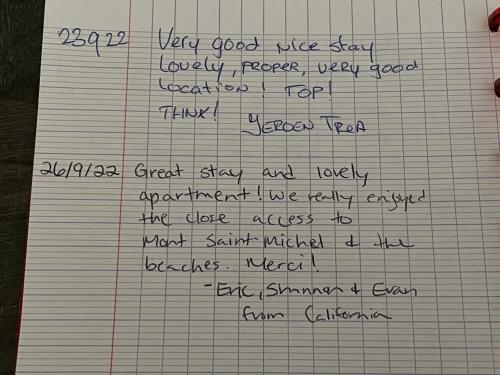 23922 Very good nice stay
Lovely, PROPER, very good
Location! TOP!
THNX!
YEROEN TReA
26/9/22 Great stay and lovely
apartment! We really enjoyed
the close access to
Mont Saint Michel & the
beaches. Merci!
- Eric, Shannan & Evan
from California